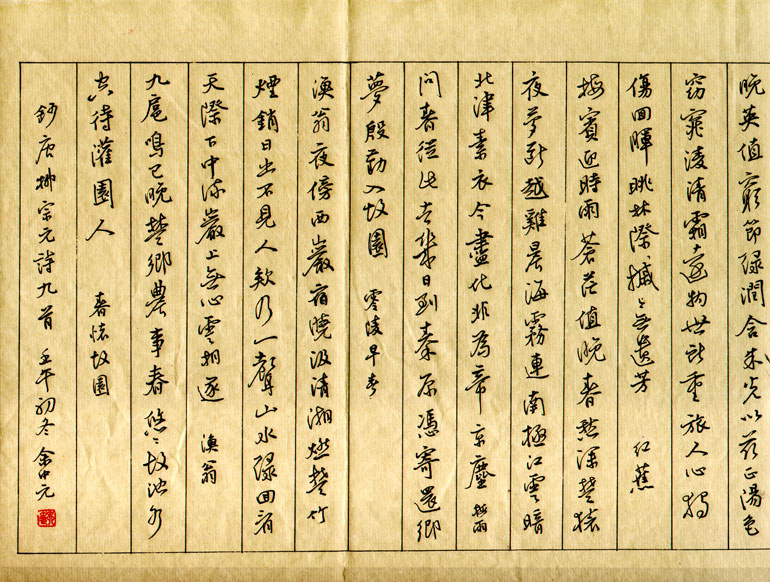 晚英值窮節綠潤含朱光以茲正陽色
窈窕淩清霜遠物世所重旅人心獨
傷回暉眺林際摵〻無遺芳 紅蕉
梅實迎時雨蒼茫值晚春愁深楚猿
夜夢斷越雞晨海霧連南極江雲暗
北津素衣今盡化非為帝京塵 梅雨
問春從此去幾日到秦原憑寄還鄉
夢殷勤入故園 零陵早春
漁翁夜傍西巖宿曉汲清湘燃楚竹
煙銷日出不見人欸乃一聲山水綠回看
天際下中流巖上無心雲相逐 漁翁
九扈鳴已晚楚鄉農事春悠〻故池水
空待灌園人 春懷故園
鈔唐柳宗元詩九首 壬午初冬 余中元